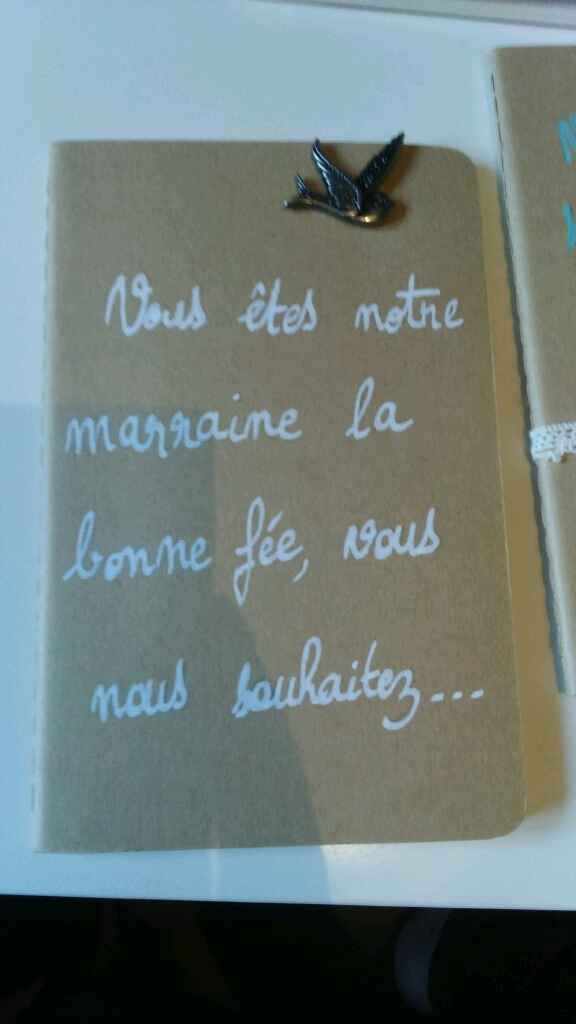 Vous êtes notre
marraine la
bonne fée, vous
nous souhaitez...